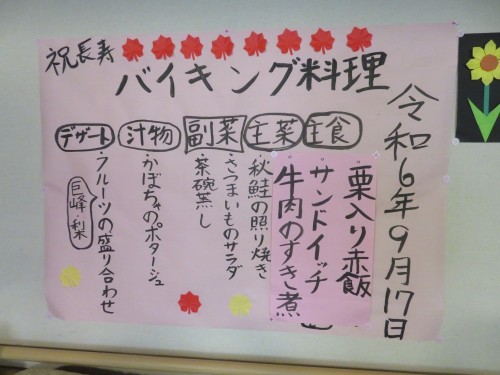 祝長寿
バイキング料理
令和6年9月17日
主食
・栗入り赤飯
・サンドイッチ
・牛肉のすき煮
主菜
・秋鮭の照り焼き
副菜
・さつまいものサラダ
・茶碗蒸し
汁物
・かぼちゃのポタージュ
デザート
・フルーツの盛り合わせ
巨峰・梨